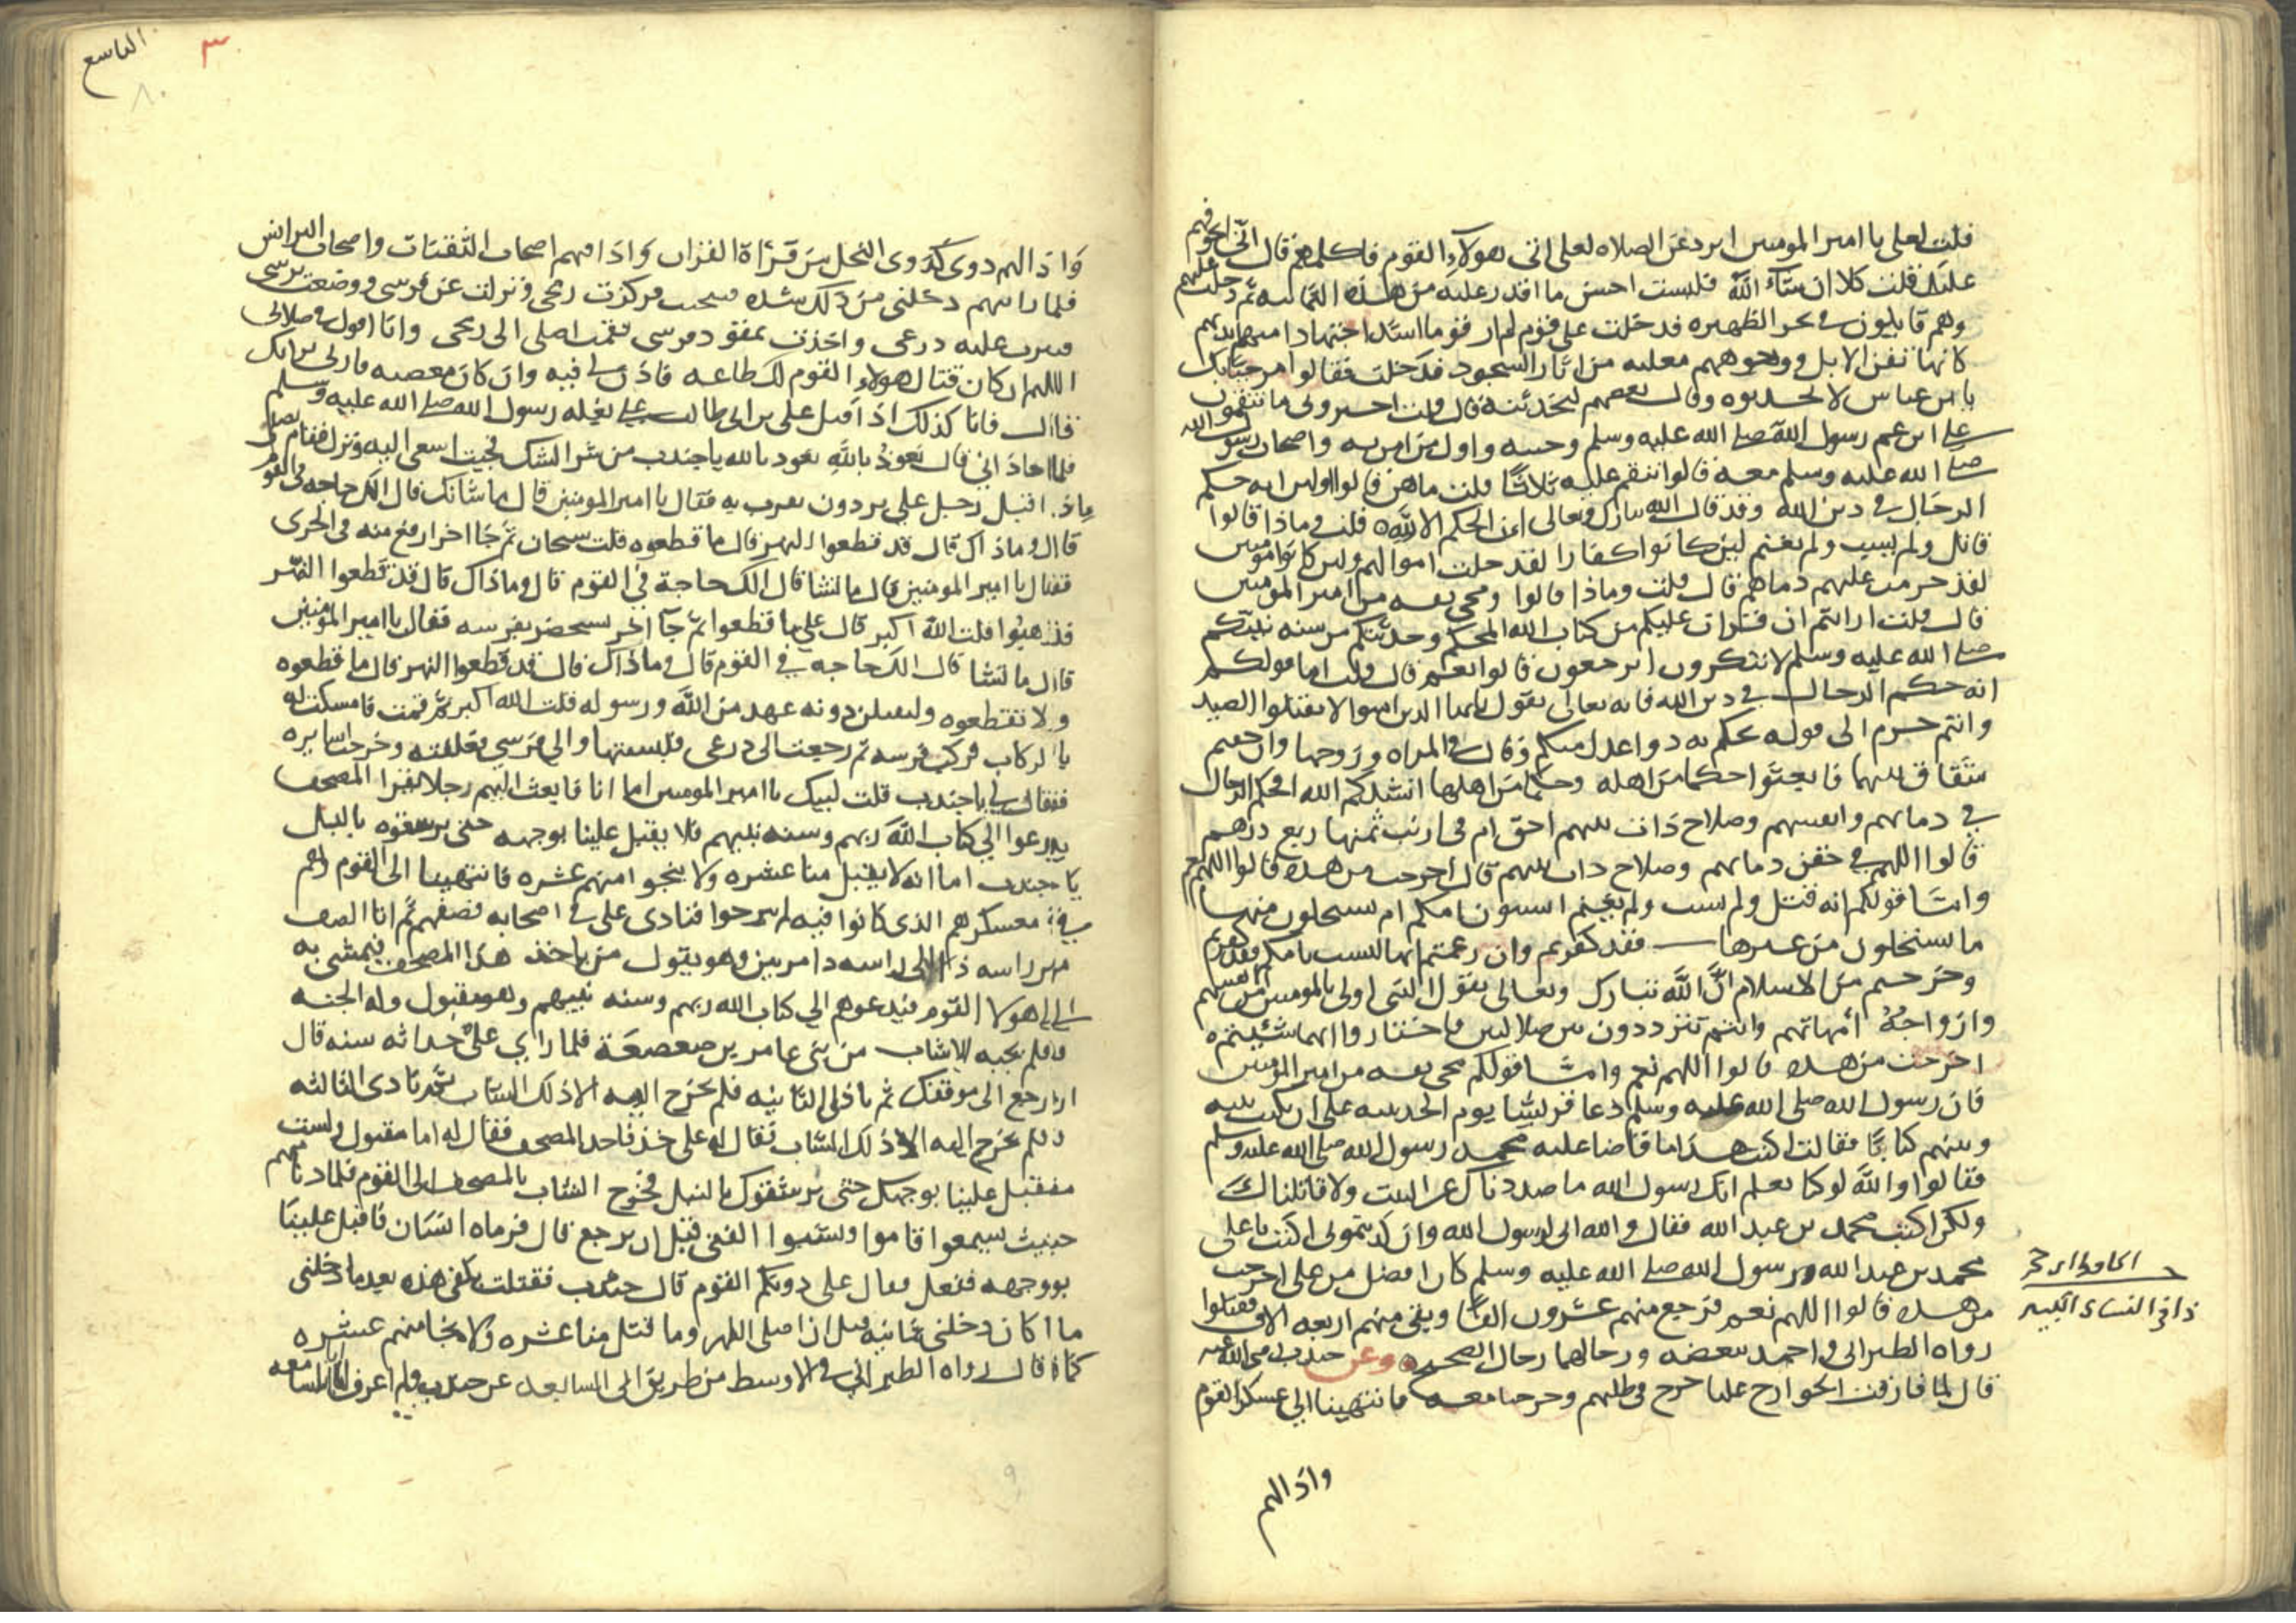 قلت لعلي يا امير المومنين ابرد عن الصلاه لعلي اتي هولاء القوم فاكلمهم قال اني اتخوفهم
عليك قلت كلا ان شاء الله فلبست احسن ما اقدر عليه من هذه اليمانيه ثم دخلت عليهم
وهم قايلون في نحر الظهيره فدخلت على قوم لم ار قوما اشد اجتهادا منهم ايديهم
كانها ثفن الابل ووجوههم معلبه من اثار السجود فدخلت فقالوا مرحبا بك
يا ابن عباس لا تحدثوه وقال بعضهم لنحدثنه قال قلت اخبروني ما تنقمون
على ابن عم رسول الله صلى الله عليه وسلم وختنه واول من امن به واصحاب رسول الله
صلى الله عليه وسلم معه قالوا ننقم عليه ثلاثا قلت ما هن قالوا اولهن انه حكم
الرجال في دين الله وقد قال الله تبارك وتعالى ان الحكم الا لله قلت وماذا قالوا
قاتل ولم يسب ولم يغنم لين كانوا كفارا لقد حلت اموالهم ولين كانوا مومنين
لقد حرمت عليهم دماهم قال قلت وماذا قالوا ومحى نفسه من امير المومنين
قال قلت ارايتم ان قرات عليكم من كتاب الله المحكم وحدثتكم من سنه نبيكم
صلى الله عليه وسلم لا تنكرون اترجعون قالوا نعم قال قلت اما قولكم
انه حكم الرجال في دين الله فانه تعالى يقول يايها الذين امنوا لا تقتلوا الصيد
وانتم حرم الى قوله يحكم به ذوا عدل منكم وقال في المراه وزوجها وان خفتم
شقاق بينهما فابعثوا حكما من اهله وحكما من اهلها انشدكم الله افحكم الرجال
في دمايهم وانفسهم وصلاح ذات بينهم احق ام في ارنب ثمنها ربع درهم
قالوا اللهم في حقن دمايهم وصلاح ذات بينهم قال اخرجت من هذه قالوا اللهم نعم
واما قولكم انه قتل ولم يسب ولم يغنم اتسبون امكم ام تستحلون منها
ما تستحلون من غيرها فقد كفرتم وان زعمتم انها ليست بامكم فقد كفرتم
وخرجتم من الاسلام ان الله تبارك وتعالى يقول النبي اولى بالمومنين من انفسهم
وازواجه امهاتهم وانتم تترددون بين ضلالتين فاختاروا ايهما شيتم
اخرجت من هذه قالوا اللهم نعم واما قولكم محى نفسه من امير المومنين
فان رسول الله صلى الله عليه وسلم دعا قريشا يوم الحديبيه على ان يكتب بينه
وبينهم كتابا فقال اكتب هذا ما قاضا عليه محمد رسول الله صلى الله عليه وسلم
فقالوا والله لو كنا نعلم انك رسول الله ما صددناك عن البيت ولا قاتلناك
ولكن اكتب محمد بن عبد الله فقال والله اني لرسول الله وان كذبتموني اكتب يا علي
محمد بن عبد الله ورسول الله صلى الله عليه وسلم كان افضل من علي اخرجت
من هذه قالوا اللهم نعم فرجع منهم عشرون الفا وبقي منهم اربعه الاف فقتلوا
رواه الطبراني واحمد ببعضه ورجالهما رجال الصحيح وعن جندب رضي الله عنه
قال لما فارقت الخوارج عليا خرج في طلبهم وخرجنا معه فانتهينا الى عسكر القوم
واذا لهم
ذا في النساي الكبير
التاسع
٣
٨٠
واذا لهم دوي كدوي النحل من قراة القران واذا فيهم اصحاب الثفنات واصحاب البرانس
فلما رايتهم دخلني من ذلك شده فتنحيت فركزت رمحي ونزلت عن فرسي ووضعت برنسي
فنثرت عليه درعي واخذت بمقود فرسي فقمت اصلي الى رمحي وانا اقول في صلاتي
اللهم ان كان قتال هولاء القوم لك طاعه فاذن لي فيه وان كان معصيه فارني براتك
قال فانا كذلك اذ اقبل علي بن ابي طالب على بغله رسول الله صلى الله عليه وسلم
فلما حاذاني قال تعوذ بالله تعوذ بالله يا جندب من شر الشك فجيت اسعى اليه ونزل فقام يصلي
اذ اقبل رجل على برذون يقرب به فقال يا امير المومنين قال ما شانك قال الك حاجه في القوم
قال وما ذاك قال قد قطعوا النهر قال ما قطعوه قلت سبحان ثم جا اخر ارفع منه في الجري
فقال يا امير المومنين قال ما تشا قال الك حاجة في القوم قال وما ذاك قال قد قطعوا النهر
فذهبوا قلت الله اكبر قال علي ما قطعوا ثم جا اخر يستحضر بفرسه فقال يا امير المومنين
قال ما تشا قال الك حاجه في القوم قال وما ذاك قال قد قطعوا النهر قال ما قطعوه
ولا تقطعوه وليقتلن دونه عهد من الله ورسوله قلت الله اكبر ثم قمت فامسكت له
بالركاب فركب فرسه ثم رجعت الى درعي فلبستها والى فرسي فعلفته وخرجت اسايره
فقال لي يا جندب قلت لبيك يا امير المومنين اما انا فابعث اليهم رجلا يقرا المصحف
يدعوا الى كتاب الله ربهم وسنه نبيهم فلا يقبل علينا بوجهه حتى يرشقوه بالنبل
يا جندب اما انه لا يقتل منا عشره ولا ينجوا منهم عشره فانتهينا الى القوم وهم
في معسكرهم الذي كانوا فيه لم يبرحوا فنادى علي في اصحابه فصفهم ثم اتا الصف
من راسه ذا الى راسه ذا مرتين وهو يقول من ياخذ هذا المصحف فيمشي به
الى هولا القوم فيدعوهم الى كتاب الله ربهم وسنه نبيهم وهو مقتول وله الجنه
فلم يجبه الا شاب من بني عامر بن صعصعة فلما راي علي حداثه سنه قال
ارجع الى موقفك ثم نادى الثانيه فلم يخرج اليه الا ذلك الشاب ثم نادى الثالثه
فلم يخرج اليه الا ذلك الشاب فقال له علي خذ فاخذ المصحف فقال له اما مقتول ولست
مقبل علينا بوجهك حتى يرشقوك بالنبل فخرج الشاب بالمصحف الى القوم فلما دنا منهم
حيث يسمعوا قاموا ونشبوا الفتى قبل ان يرجع قال فرماه انسان فاقبل علينا
بووجهه فقعد فقال علي دونكم القوم قال جندب فقتلت بكفي هذه بعد ما دخلني
ما كان دخلني ثمانيه قبل ان اصلي الظهر وما قتل منا عشره ولا نجا منهم عشره
كما قال رواه الطبراني في الاوسط من طريق ابي السابعه عن جندب ولم اعرف ابا السابعه